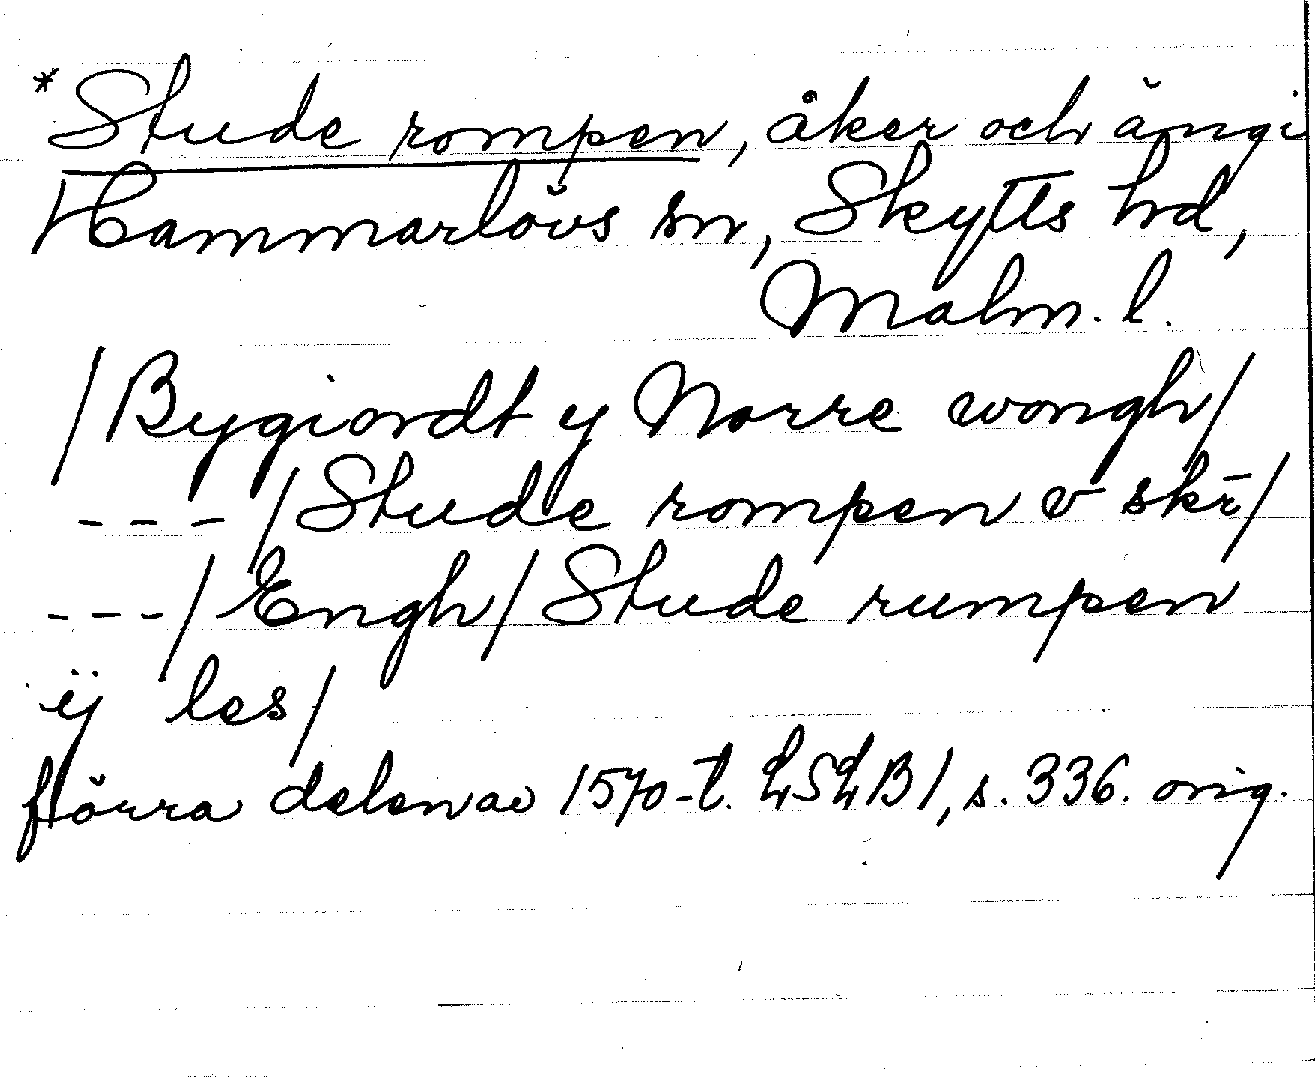 *Stude rompen, åker och äng i
Hammarlövs sn, Skytts hd,
Malm. l.
/Bygiordt y Norre wongh/
---/Stude rompen v skr̄/
---/Engh/Stude rumpen
ÿ les/
förra delen av 1570-t. LSLB 1, s. 336. orig.